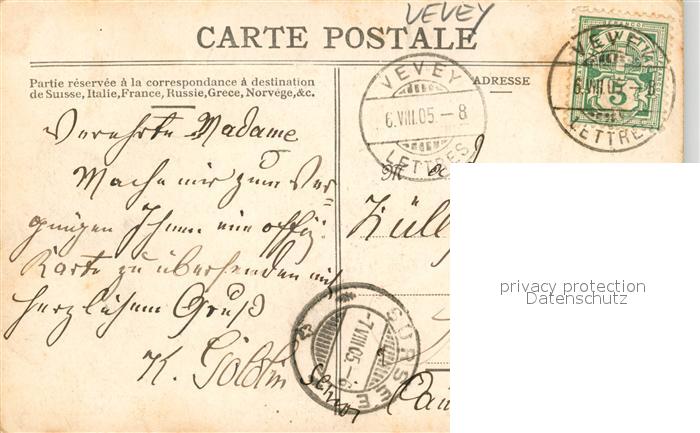 VEVEY
CARTE POSTALE
Partie réservée à la correspondance à destination
de Suisse, Italie, France, Russie, Grèce, Norvège, &c.
ADRESSE
VEVEY
6.VIII.05.-8
LETTRES
HELVETIA
5
VEVEY
6.VIII.05.-8
LETTRES
Verehrte Madame
Mache mir zum Ver=
gnügen Ihnen eine offiz.
Karte zu übersenden mit
herzlichem Gruß
K.
SURSEE
-7.VIII.05.-6
privacy protection
Datenschutz